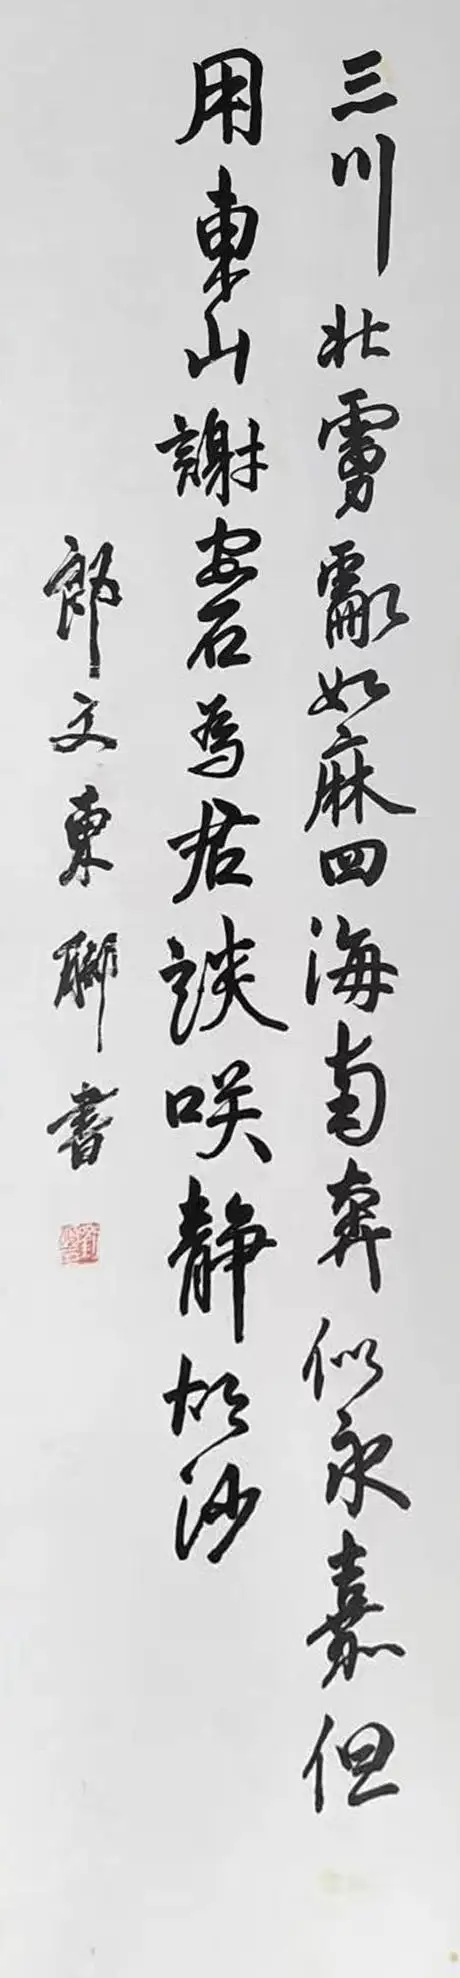 三川北虜亂如麻四海南奔似永嘉但
用東山謝安石為君談咲靜胡沙
郎文東聊書